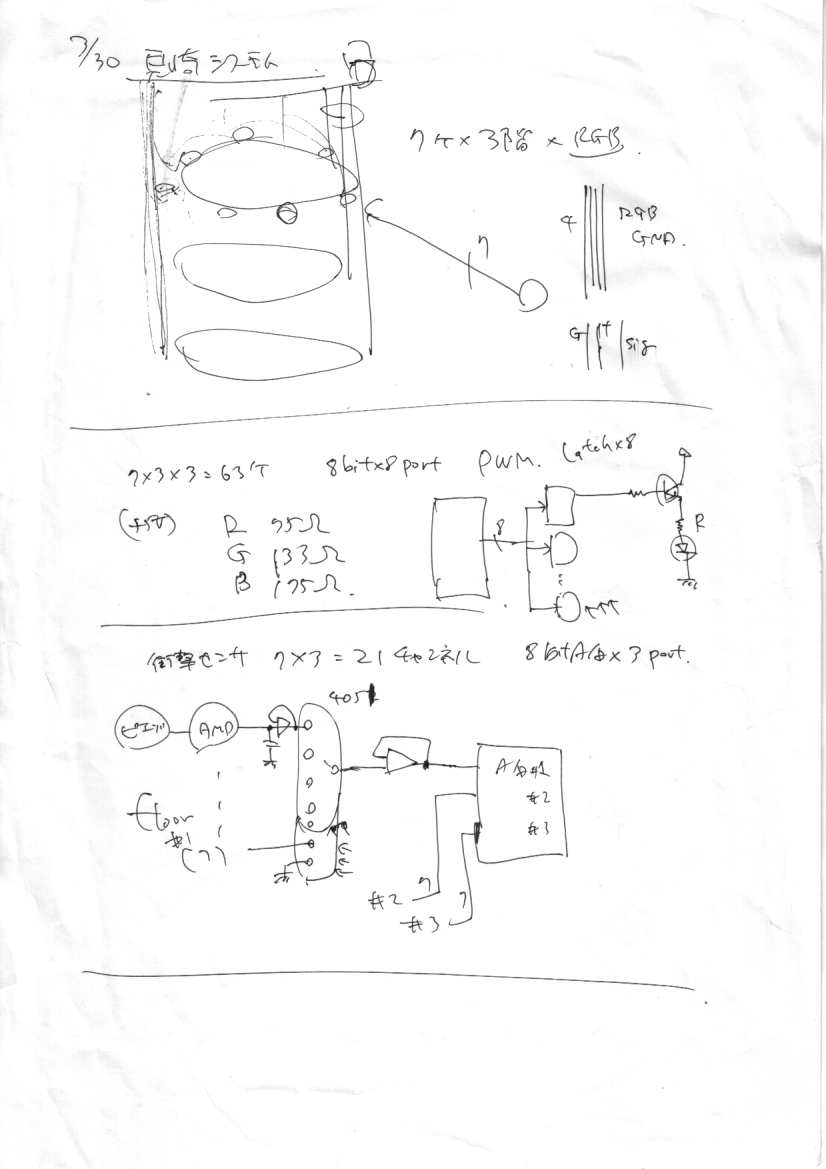 7/30 システム
7ケ×3階×RGB.
4
RGB
GND.
7
G + sig
7×3×3=63ケ 8bit×8port PWM. Latch×8
(+5V) R 95Ω
G 133Ω
B 175Ω.
8
R
衝撃センサ 7×3=21チャンネル 8bitA/D×3port.
4051
ピエゾ AMP
Floor
#1
(7)
A/D#1
#2
#3
#2 7
#3 7